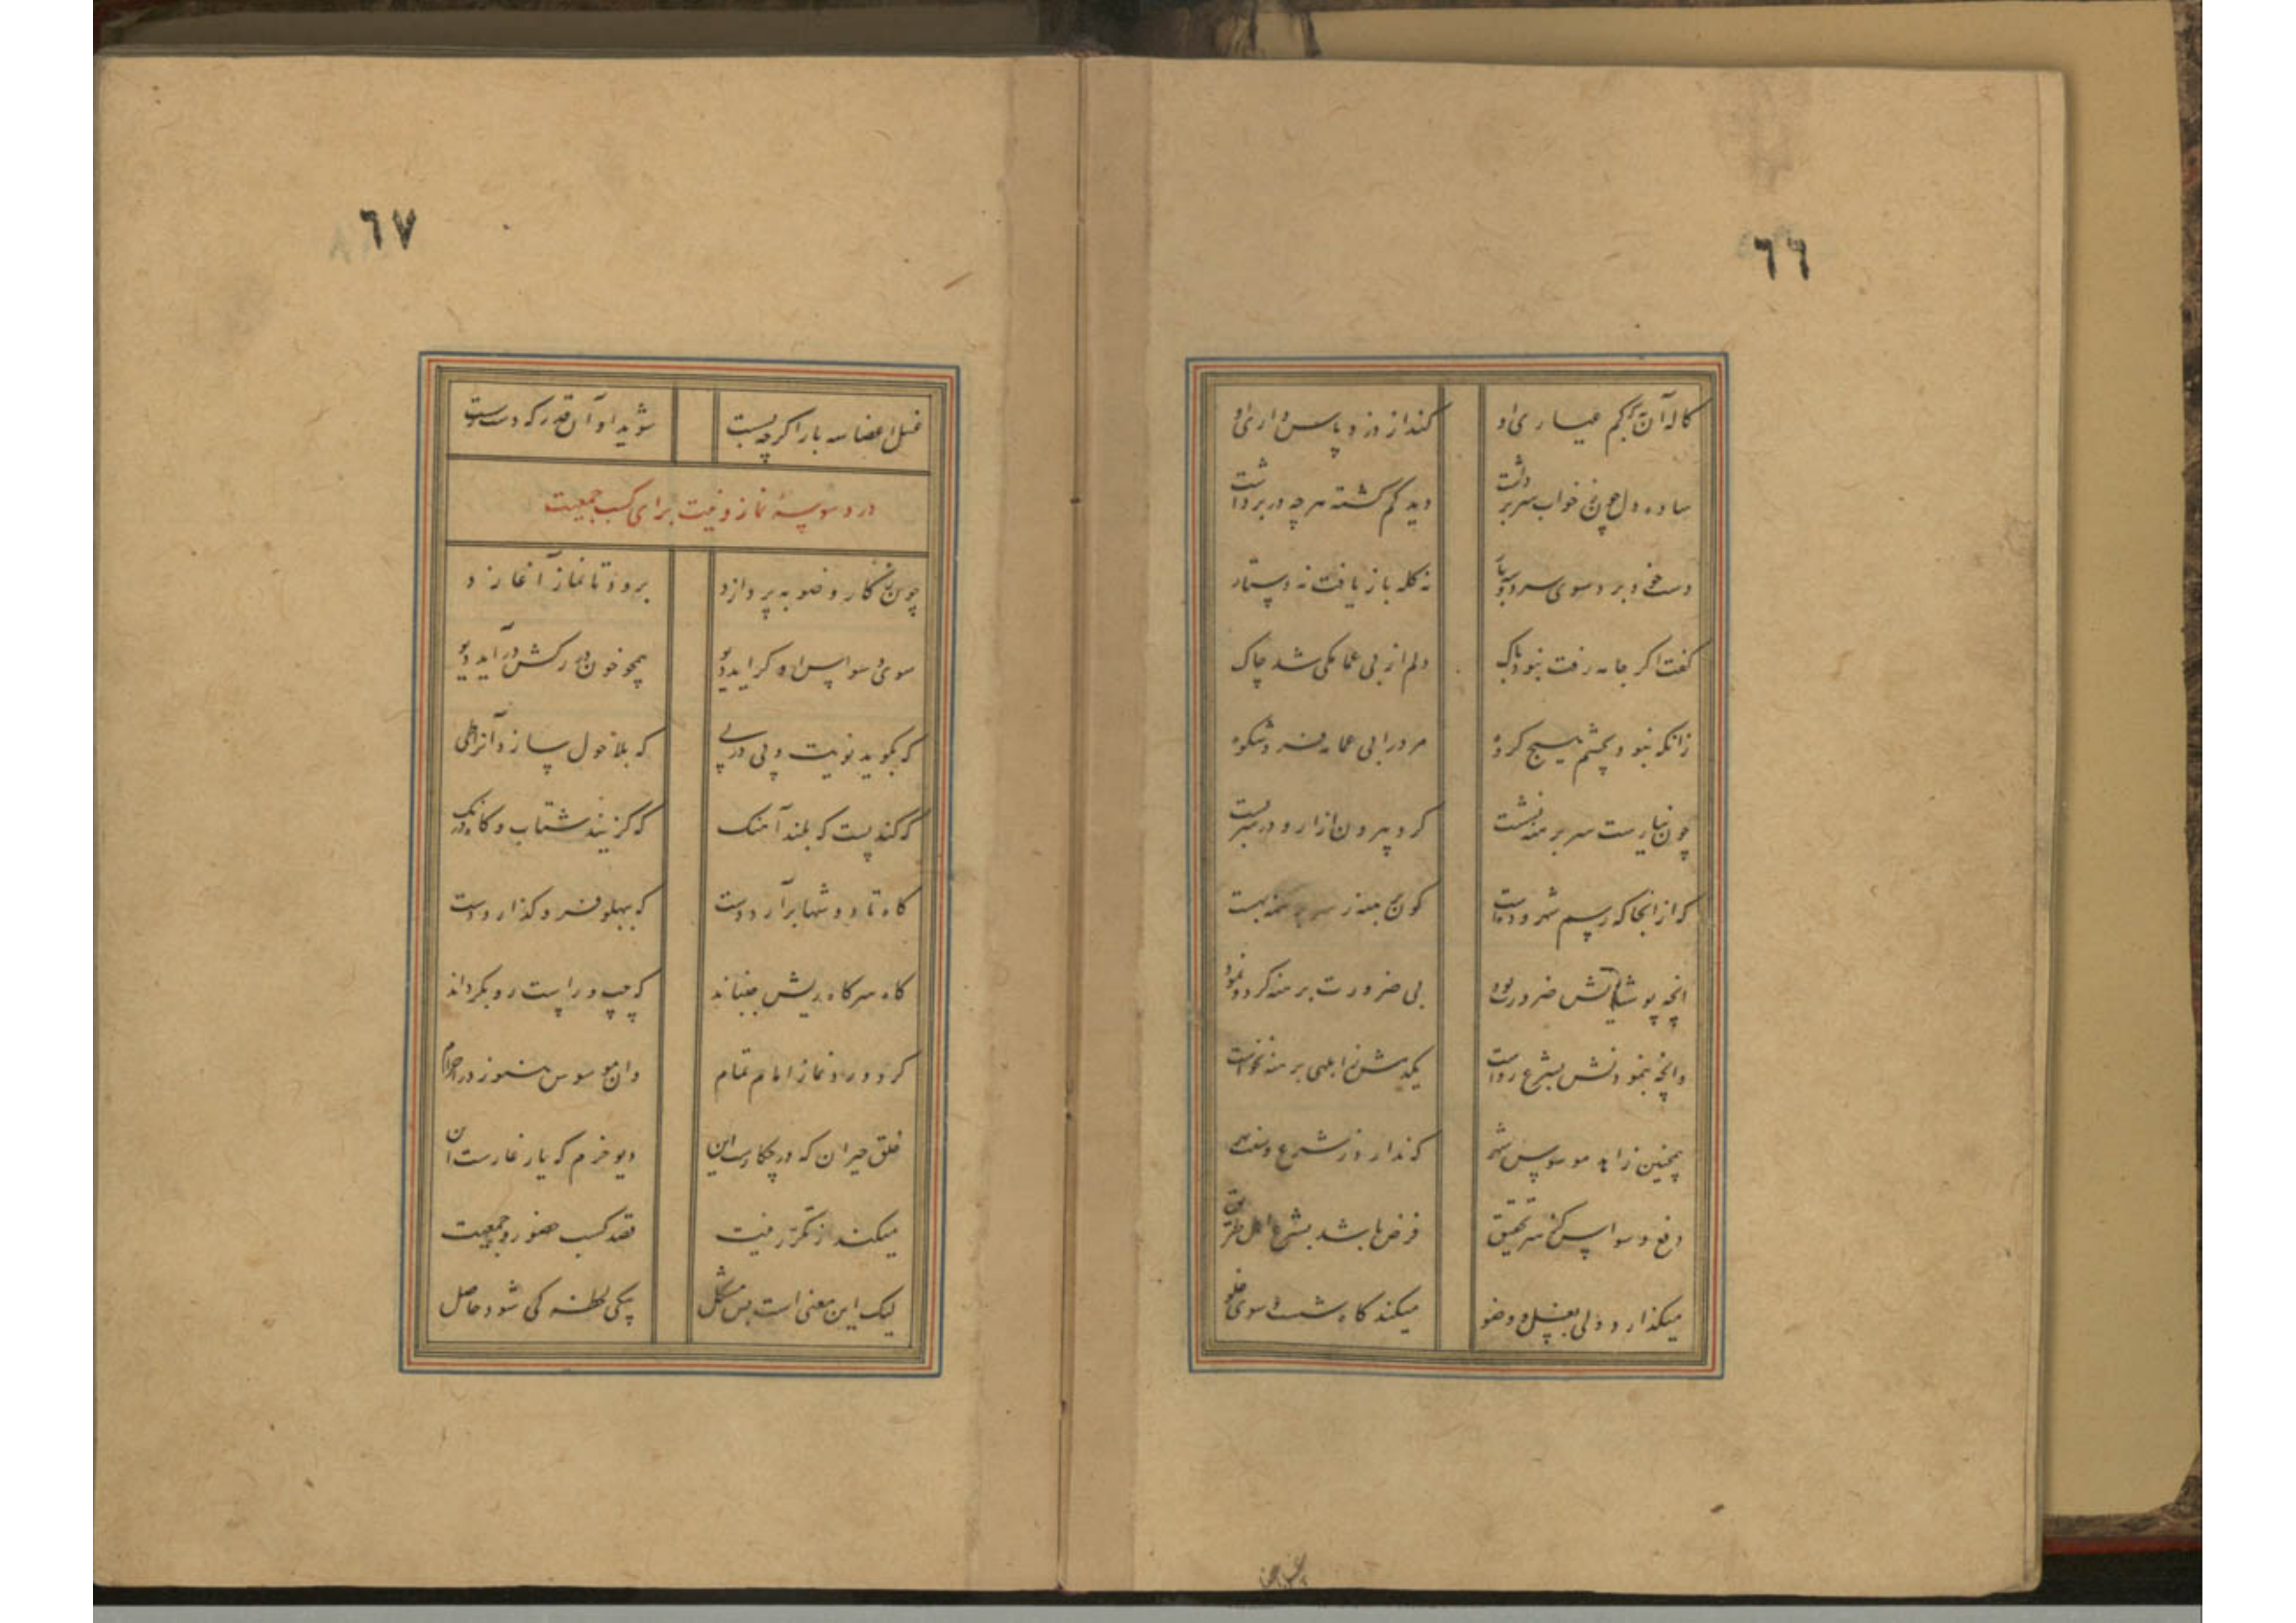 ٦٦
کاله آن به کم عیاری او کند از دزد پاس داری او
ساده دل چون ز خواب سر برداشت دید کم گشته هرچه در بر داشت
دست خود برد سوی سر دو سه بار نه کله باز یافت نه دستار
گفت اگر جامه رفت نبود باک دلم از بی عمامگی شد چاک
زانکه نبود بچشم هیچ کروه مرد را بی عمامه فر و شکوه
چون نیارست سر برهنه نشست کرد بیرون ازار و در سر بست
که از انجا که رسم شهر و ده است کون برهنه ز سر برهنه به است
انچه پوشیدنش ضرورت بود بی ضرورت برهنه کرد و نمود
وانچه ننمودنش بشرع رواست یکدمش ز ابلهی برهنه نخواست
همچنین زاهد موسوس شهر که ندارد ز شرع و سنت بهر
دفع وسواس کز سر تحقیق فرض باشد بشرع اهل طریق
میکذارد ولی بغسل و وضو میکند کاه شست و شوی غلو
٦٧
غسل اعضا سه بار اکرچه بست شوید او آن قدر که دست
در وسوسهٔ نماز و نیت برای کسب جمعیت
چون ز کار وضو بپردازد برود تا نماز آغازد
سوی وسواس او کراید دیو همچو خون در رکش درآید دیو
که بکوید نویت و پی در پی که بلاحول سازد آنرا طی
که کند پست که بلند آهنک که کزیند شتاب و کاه درنک
کاه تا دوشها برآرد دست که بپهلو فرو کذارد دست
کاه سر کاه ریش جنباند که چپ و راست رو بکرداند
کرده ورد نماز امام تمام وان موسوس هنوز در احرام
خلق حیران که در چکارست این دیو خرم که یار غارست این
میکند از تکرر نیت قصد کسب حضور و جمعیت
لیک این معنی است بس مشکل بیکی لحظه کی شود حاصل